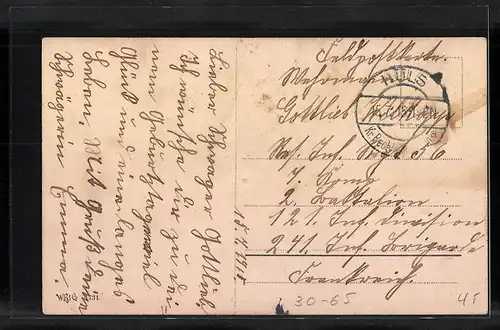 15.7.1918
Lieber Schwager Gottlieb.
Ich wünsche dir zu dei-
nem Geburtstage viel
Glück und eine langes
Leben. Mit Gruß deine
Schwägerin Emma.
Feldpostkarte.
Wehrmann
Gottlieb
Res. Inf. Regt. 56
7. Komp
2. Battalion
121 Inf. Division
241. Inf. Brigarde
Frankreich.
HÜLS
30-65